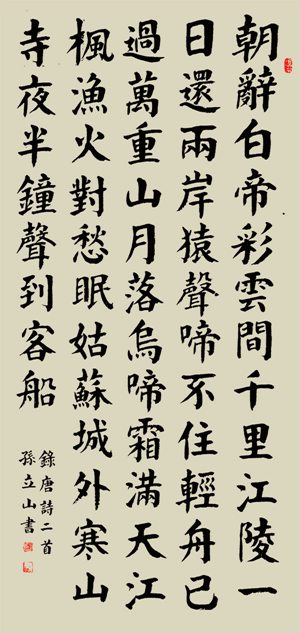 朝辭白帝彩雲間千里江陵一
日還兩岸猿聲啼不住輕舟已
過萬重山月落烏啼霜滿天江
楓漁火對愁眠姑蘇城外寒山
寺夜半鐘聲到客船
錄唐詩二首
孫立山書